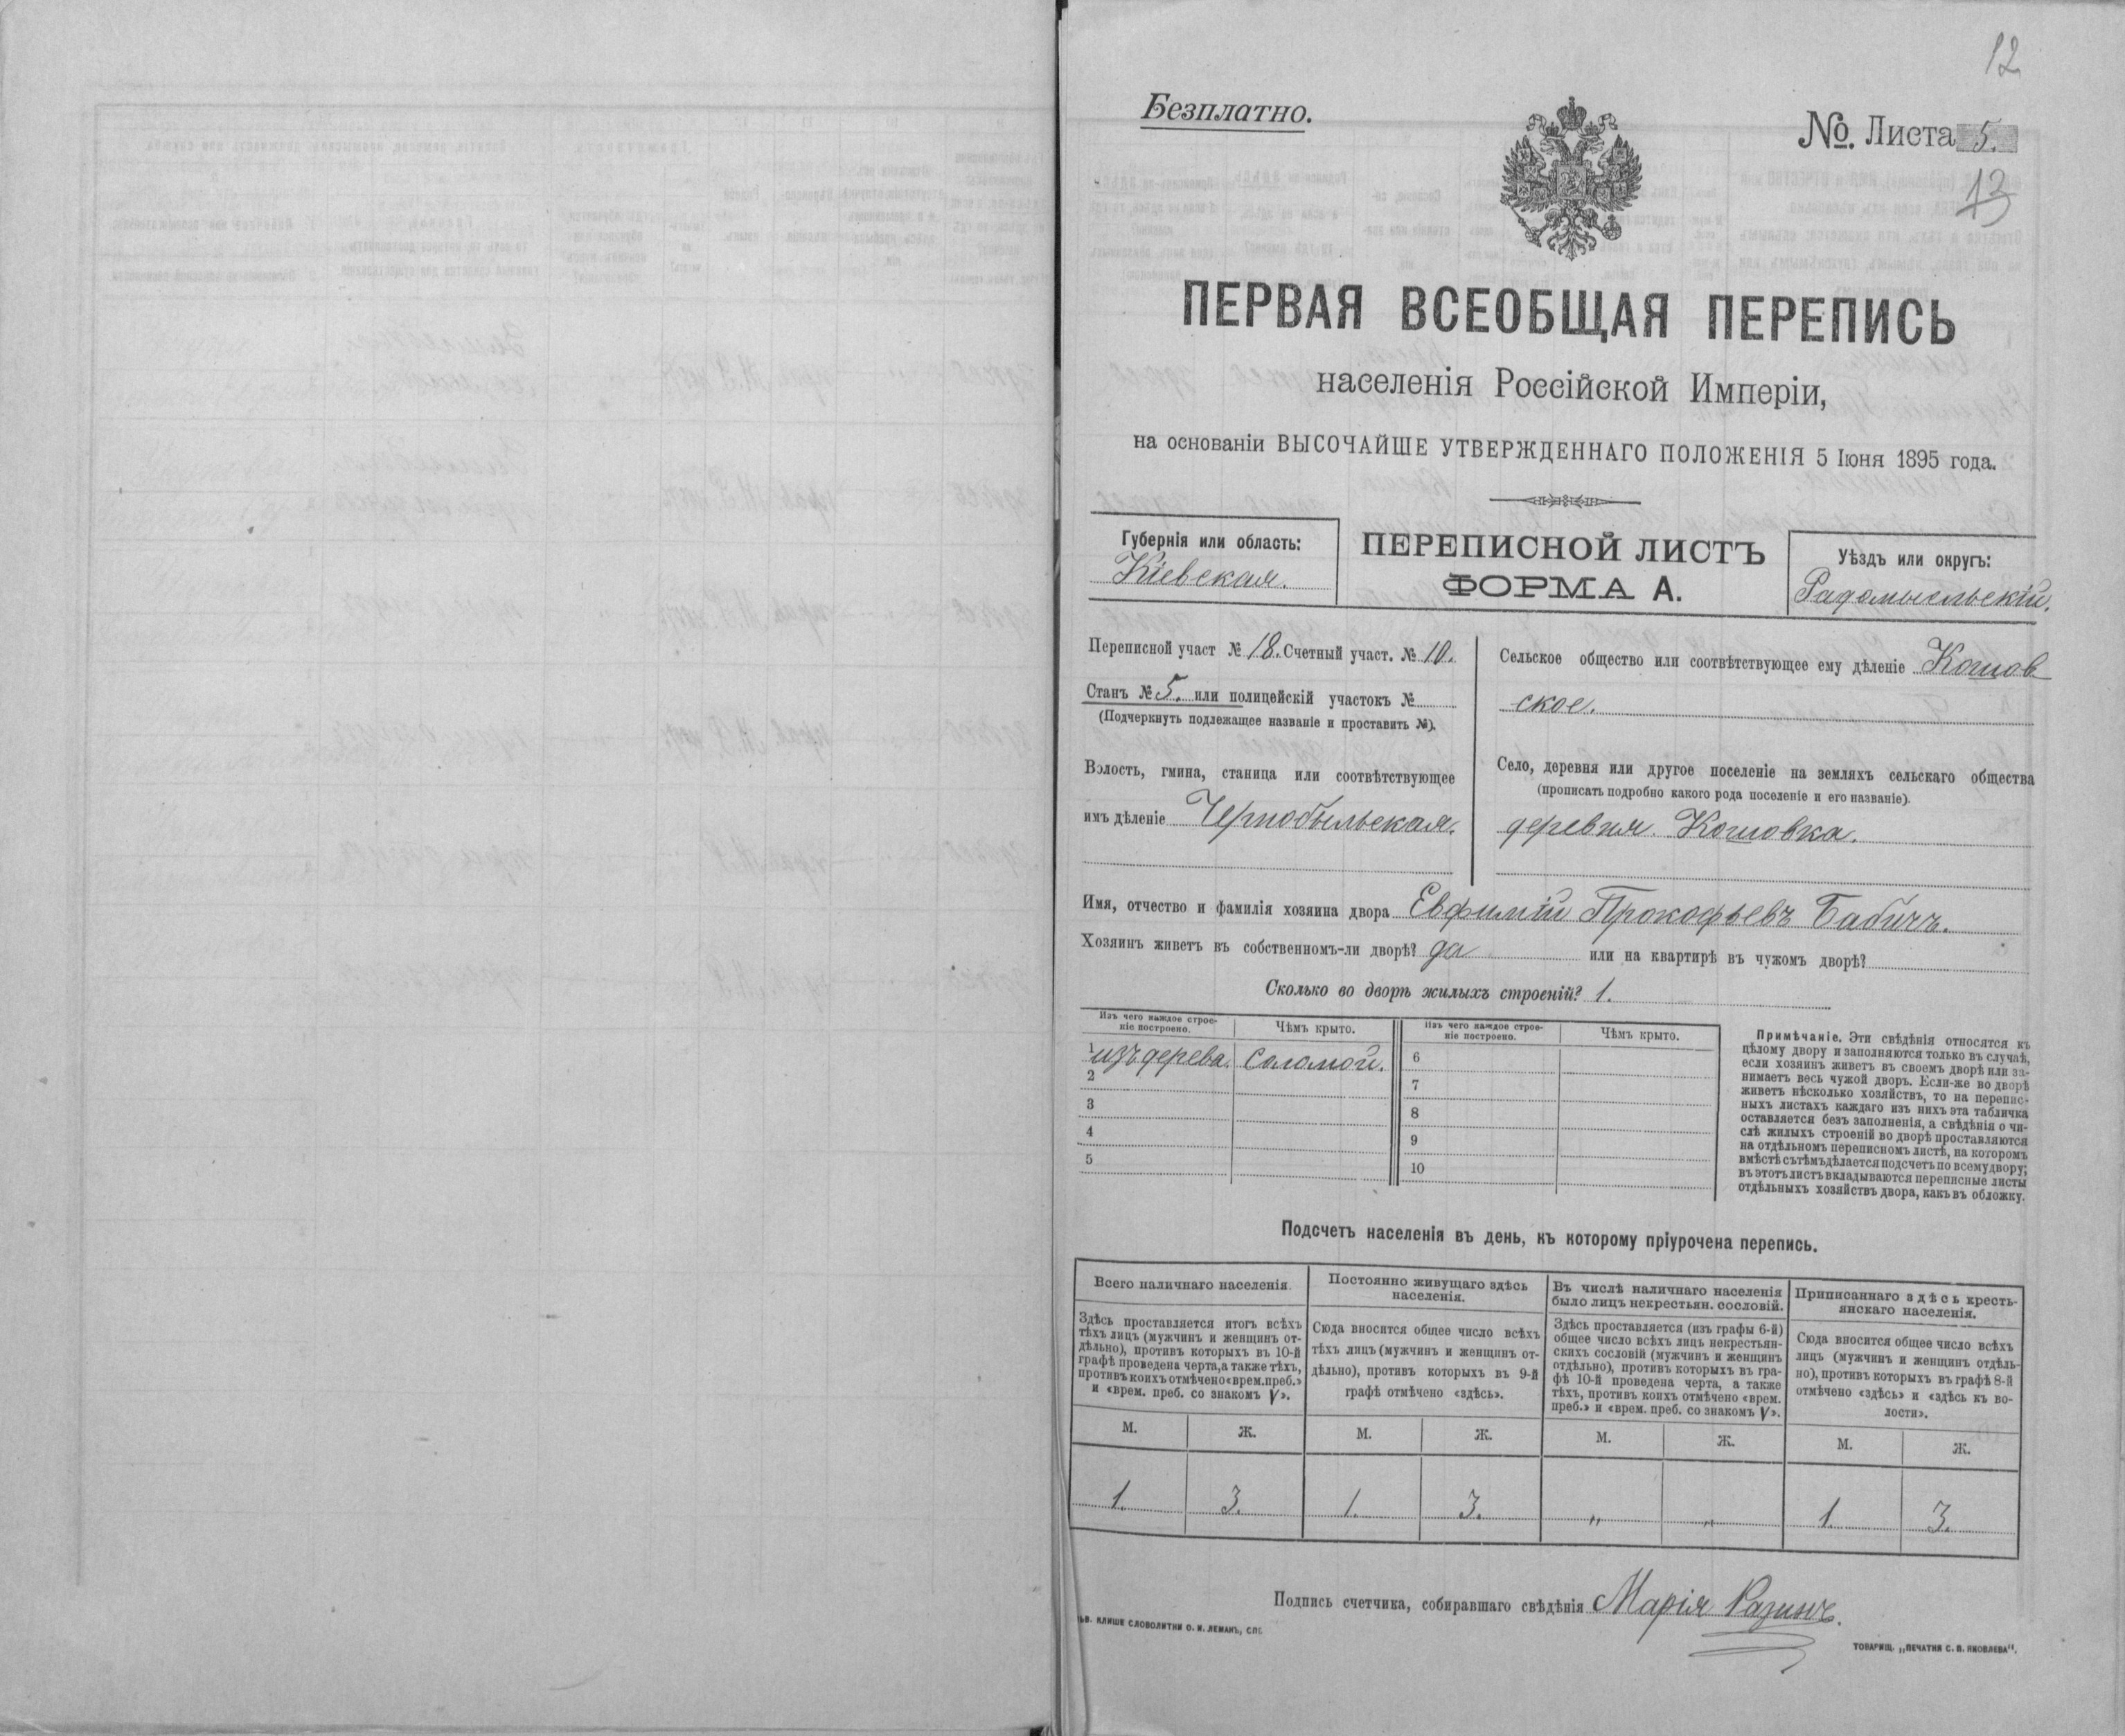 12
Безплатно.
№. Листа 5.
13
ПЕРВАЯ ВСЕОБЩАЯ ПЕРЕПИСЬ
населенія Россійской Имперіи,
на основаніи ВЫСОЧАЙШЕ УТВЕРЖДЕННАГО ПОЛОЖЕНІЯ 5 Іюня 1895 года.
Губернія или область:
Кіевская.
ПЕРЕПИСНОЙ ЛИСТЪ
ФОРМА А.
Уѣздъ или округъ:
Радомысльскій.
Переписной участ № 18. Счетный участ. № 10.
Станъ № 5. или полицейскій участокъ №
(Подчеркнуть подлежащее названіе и проставить №).
Волость, гмина, станица или соотвѣтствующее
имъ дѣленіе Чернобыльская.
Сельское общество или соотвѣтствующее ему дѣленіе Кошов
ское.
Село, деревня или другое поселеніе на земляхъ сельскаго общества
(прописать подробно какого рода поселеніе и его названіе).
деревня Кошовка.
Имя, отчество и фамилія хозяина двора Евфимій Прокофьевъ Бабичъ.
Хозяинъ живетъ въ собственномъ-ли дворѣ? да или на квартирѣ въ чужомъ дворѣ?
Сколько во дворѣ жилыхъ строеній? 1.
Изъ чего каждое строе-
ніе построено.
Чѣмъ крыто.
Изъ чего каждое строе-
ніе построено.
Чѣмъ крыто.
1 изъ дерева. Соломой. 6
2 7
3 8
4 9
5 10
Примѣчаніе. Эти свѣдѣнія относятся къ
цѣлому двору и заполняются только въ случаѣ,
если хозяинъ живетъ въ своемъ дворѣ или за-
нимаетъ весь чужой дворъ. Если-же во дворѣ
живетъ нѣсколько хозяйствъ, то на перепис-
ныхъ листахъ каждаго изъ нихъ эта табличка
оставляется безъ заполненія, а свѣдѣнія о чи-
слѣ жилыхъ строеній во дворѣ проставляются
на отдѣльномъ переписномъ листѣ, на которомъ
вмѣстѣ съ тѣмъ дѣлается подсчетъ по всему двору;
въ этотъ листъ вкладываются переписные листы
отдѣльныхъ хозяйствъ двора, какъ въ обложку.
Подсчетъ населенія въ день, къ которому пріурочена перепись.
Всего наличнаго населенія.
Здѣсь проставляется итогъ всѣхъ
тѣхъ лицъ (мужчинъ и женщинъ от-
дѣльно), противъ которыхъ въ 10-й
графѣ проведена черта, а также тѣхъ,
противъ коихъ отмѣчено «врем. преб.»
и «врем. преб. со знакомъ V».
Постоянно живущаго здѣсь
населенія.
Сюда вносится общее число всѣхъ
тѣхъ лицъ (мужчинъ и женщинъ от-
дѣльно), противъ которыхъ въ 9-й
графѣ отмѣчено «здѣсь».
Въ числѣ наличнаго населенія
было лицъ некрестьян. сословій.
Здѣсь проставляется (изъ графы 6-й)
общее число всѣхъ лицъ некрестьян-
скихъ сословій (мужчинъ и женщинъ
отдѣльно), противъ которыхъ въ гра-
фѣ 10-й проведена черта, а также
тѣхъ, противъ коихъ отмѣчено «врем.
преб.» и «врем. преб. со знакомъ V».
Приписаннаго здѣсь кресть-
янскаго населенія.
Сюда вносится общее число всѣхъ
лицъ (мужчинъ и женщинъ отдѣль-
но), противъ которыхъ въ графѣ 8-й
отмѣчено «здѣсь» и «здѣсь къ во-
лости».
М. Ж. М. Ж. М. Ж. М. Ж.
1. 3. 1. 3. „ „ 1. 3.
Подпись счетчика, собиравшаго свѣдѣнія Марія
КЛИШЕ СЛОВОЛИТНИ О. И. ЛЕМАНЪ, СПБ.
ТОВАРИЩ. „ПЕЧАТНЯ С. П. ЯКОВЛЕВА".